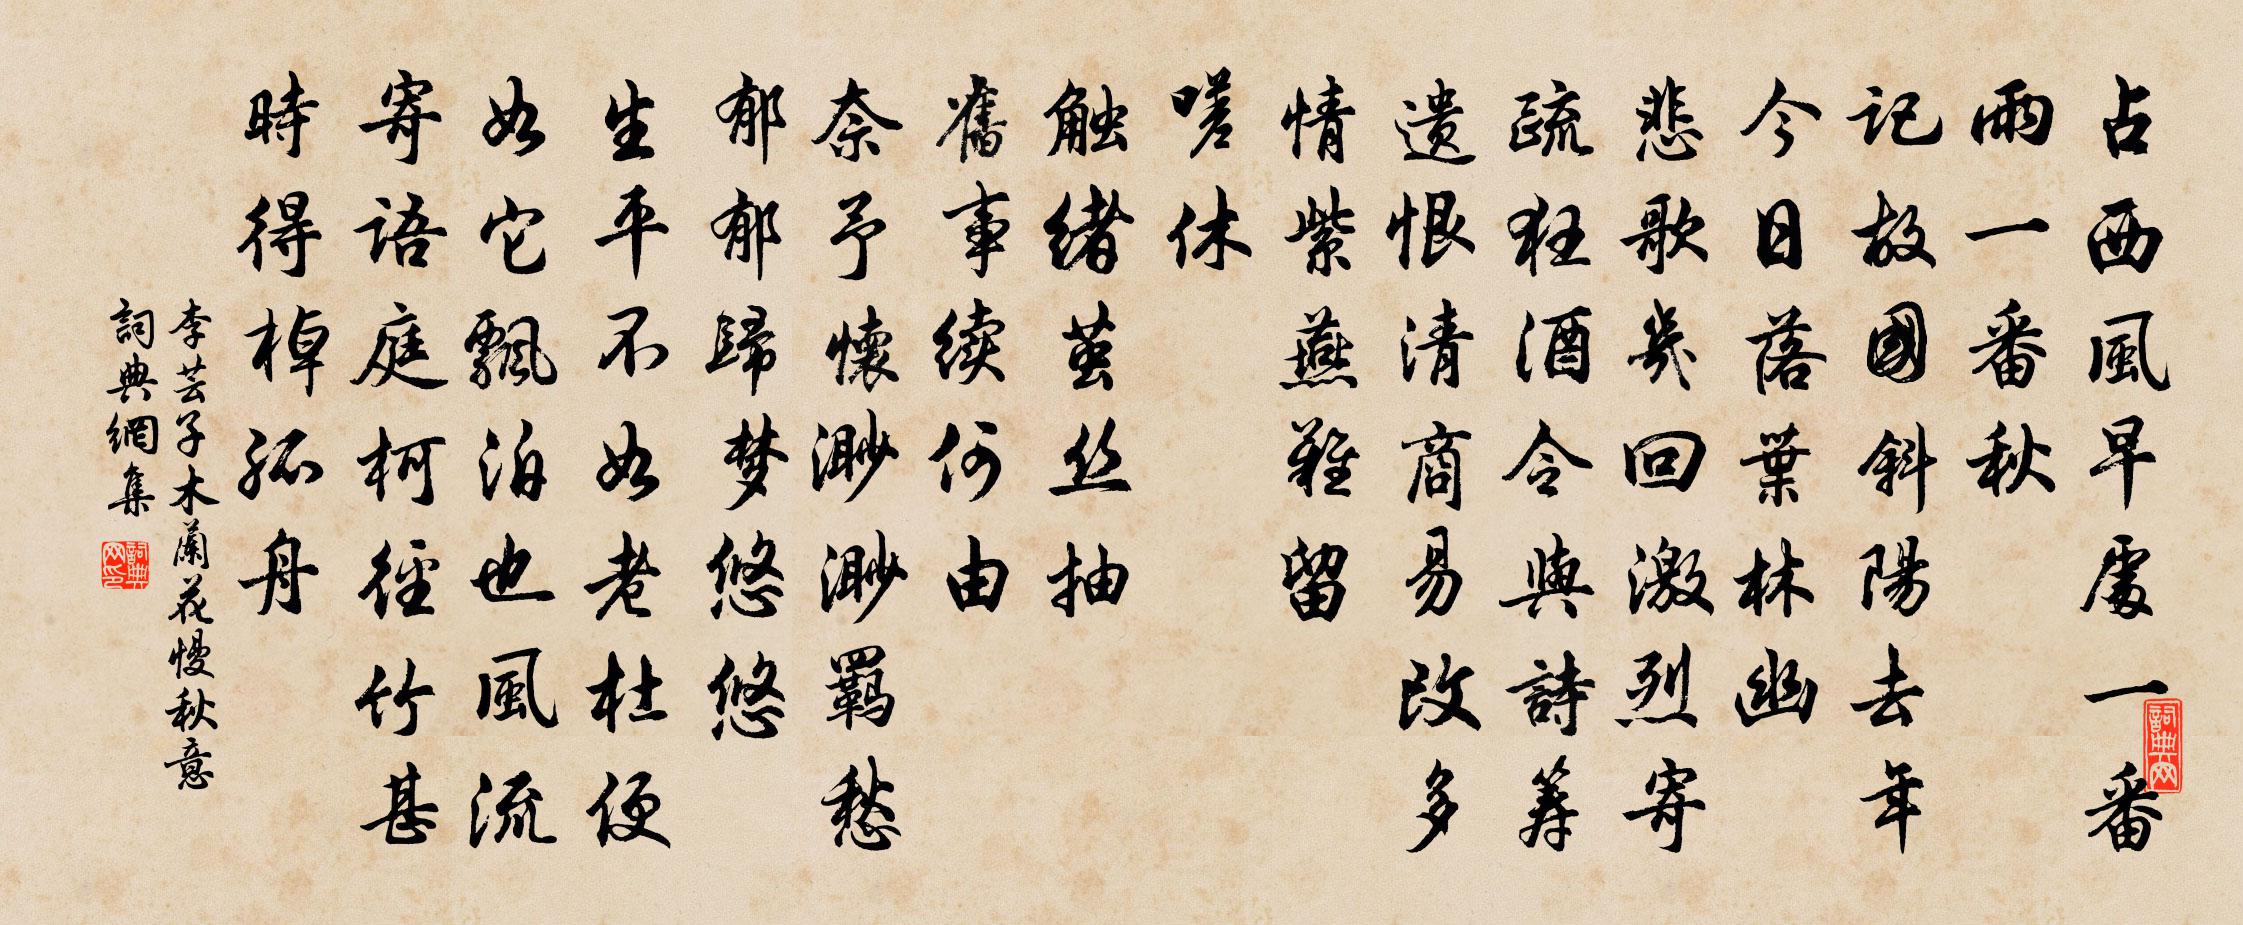 占西風早處一番
雨一番秋
記故國斜陽去年
今日落葉林幽
悲歌幾回激烈寄
疏狂酒令與詩筹
遗恨清商易改多
情紫燕難留
嗟休
触緒茧丝抽
舊事续何由
奈予懷渺渺羈愁
郁郁歸梦悠悠
生平不如老杜便
如它飄泊也風流
寄語庭柯徑竹甚
時得棹孤舟
李芸子木蘭花慢秋意
詞典網集
詞典网
詞典网印